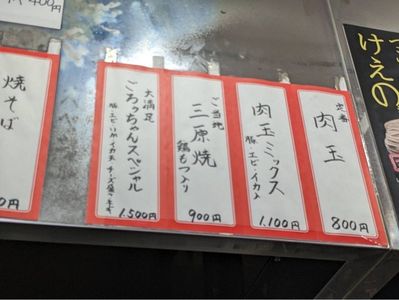 定番
肉玉
800円
肉玉ミックス
豚、エビ、イカ入
1,100円
ご当地
三原焼
鶏もつ入り
900円
大満足
ごっちゃんスペシャル
1,500円
焼そば
0円
400円
けえの